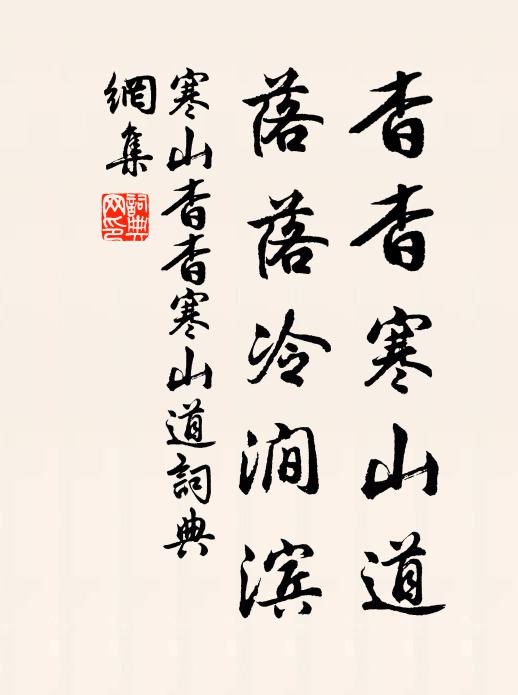 杳杳寒山道
落落冷澗滨
寒山杳杳寒山道詞典
網集
詞典
网印